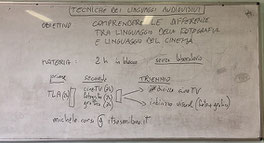 TECNICHE DEI LINGUAGGI AUDIOVISIVI
OBIETTIVO COMPRENDERE LE DIFFERENZE
TRA LINGUAGGIO DELLA FOTOGRAFIA
E LINGUAGGIO DEL CINEMA
MATERIA 2 h in blocco senza
prime SECONDE TRIENNIO
TLA cineTV (2h) cineTV
fotografia (2h) indirizzo visual (fotografia)
grafica (2h)
michele it